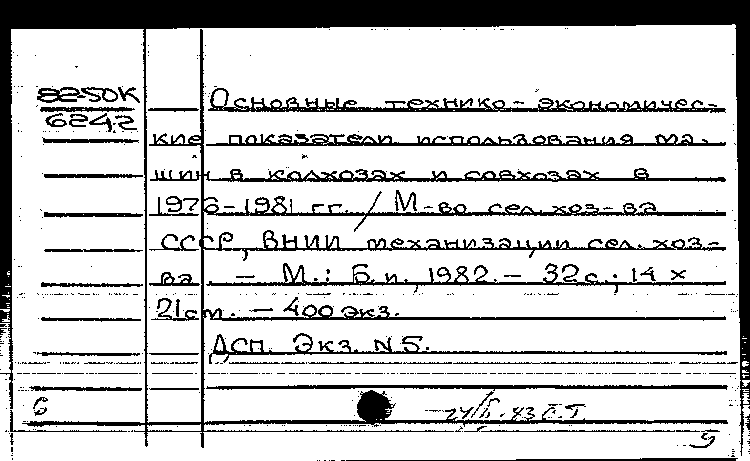 82-50К
6242
Основные технико-экономичес-
кие показатели использования ма-
шин в колхозах и совхозах в
1976-1981 гг. / М-во сел. хоз-ва
СССР, ВНИИ механизации сел. хоз-
ва. — М.: Б.и., 1982. — 32 с.; 14 x
21 см. — 400 экз.
ДСП. Экз. N5.
6
9